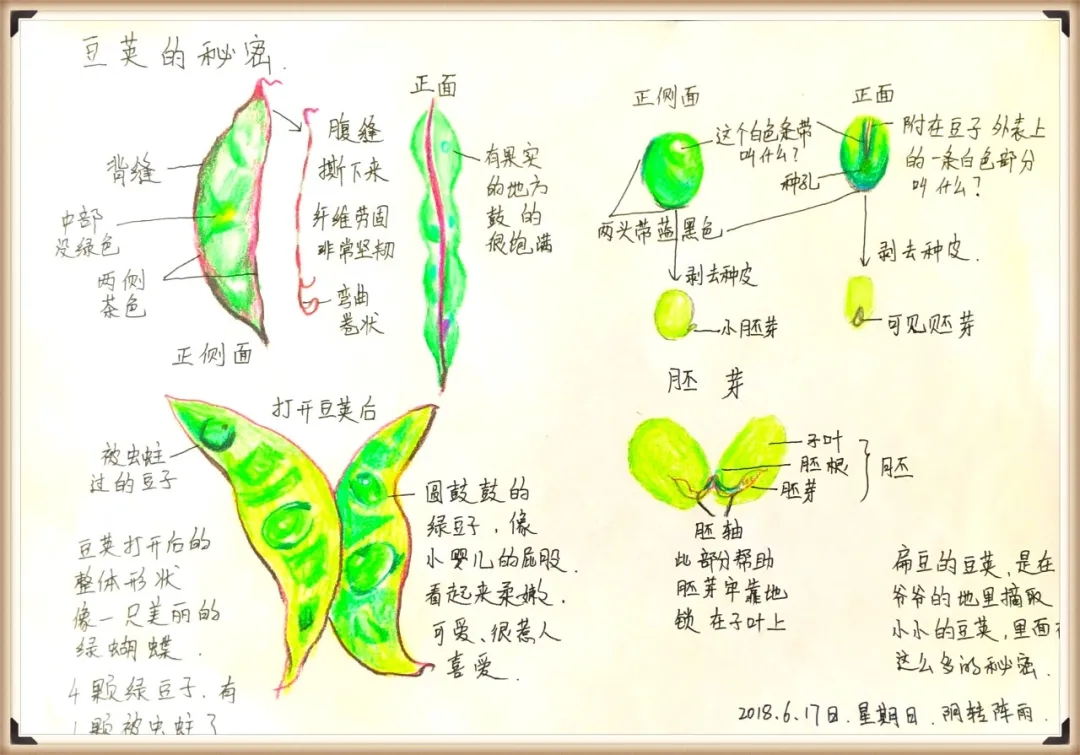 豆荚的秘密.
正面
腹缝
撕下来
纤维劳固
非常坚韧
弯曲
卷状
背缝
中部
没绿色
两侧
茶色
正侧面
有果实
的地方
鼓的
很饱满
正侧面
正面
这个白色条带
叫什么?
种孔
附在豆子外表上
的一条白色部分
叫什么?
两头带蓝黑色
剥去种皮
剥去种皮.
小胚芽
可见胚芽
打开豆荚后
被虫蛀
过的豆子
圆鼓鼓的
绿豆子,像
小婴儿的屁股.
看起来柔嫩.
可爱、很惹人
喜爱.
豆荚打开后的
整体形状
像一只美丽的
绿蝴蝶.
4颗绿豆子.有
1颗被虫蛀了
胚芽
子叶
胚根
胚芽
胚
胚轴
此部分帮助
胚芽牢靠地
锁在子叶上
扁豆的豆荚,是在
爷爷的地里摘取
小小的豆荚,里面
这么多的秘密.
2018.6.17日.星期日.阴转阵雨.